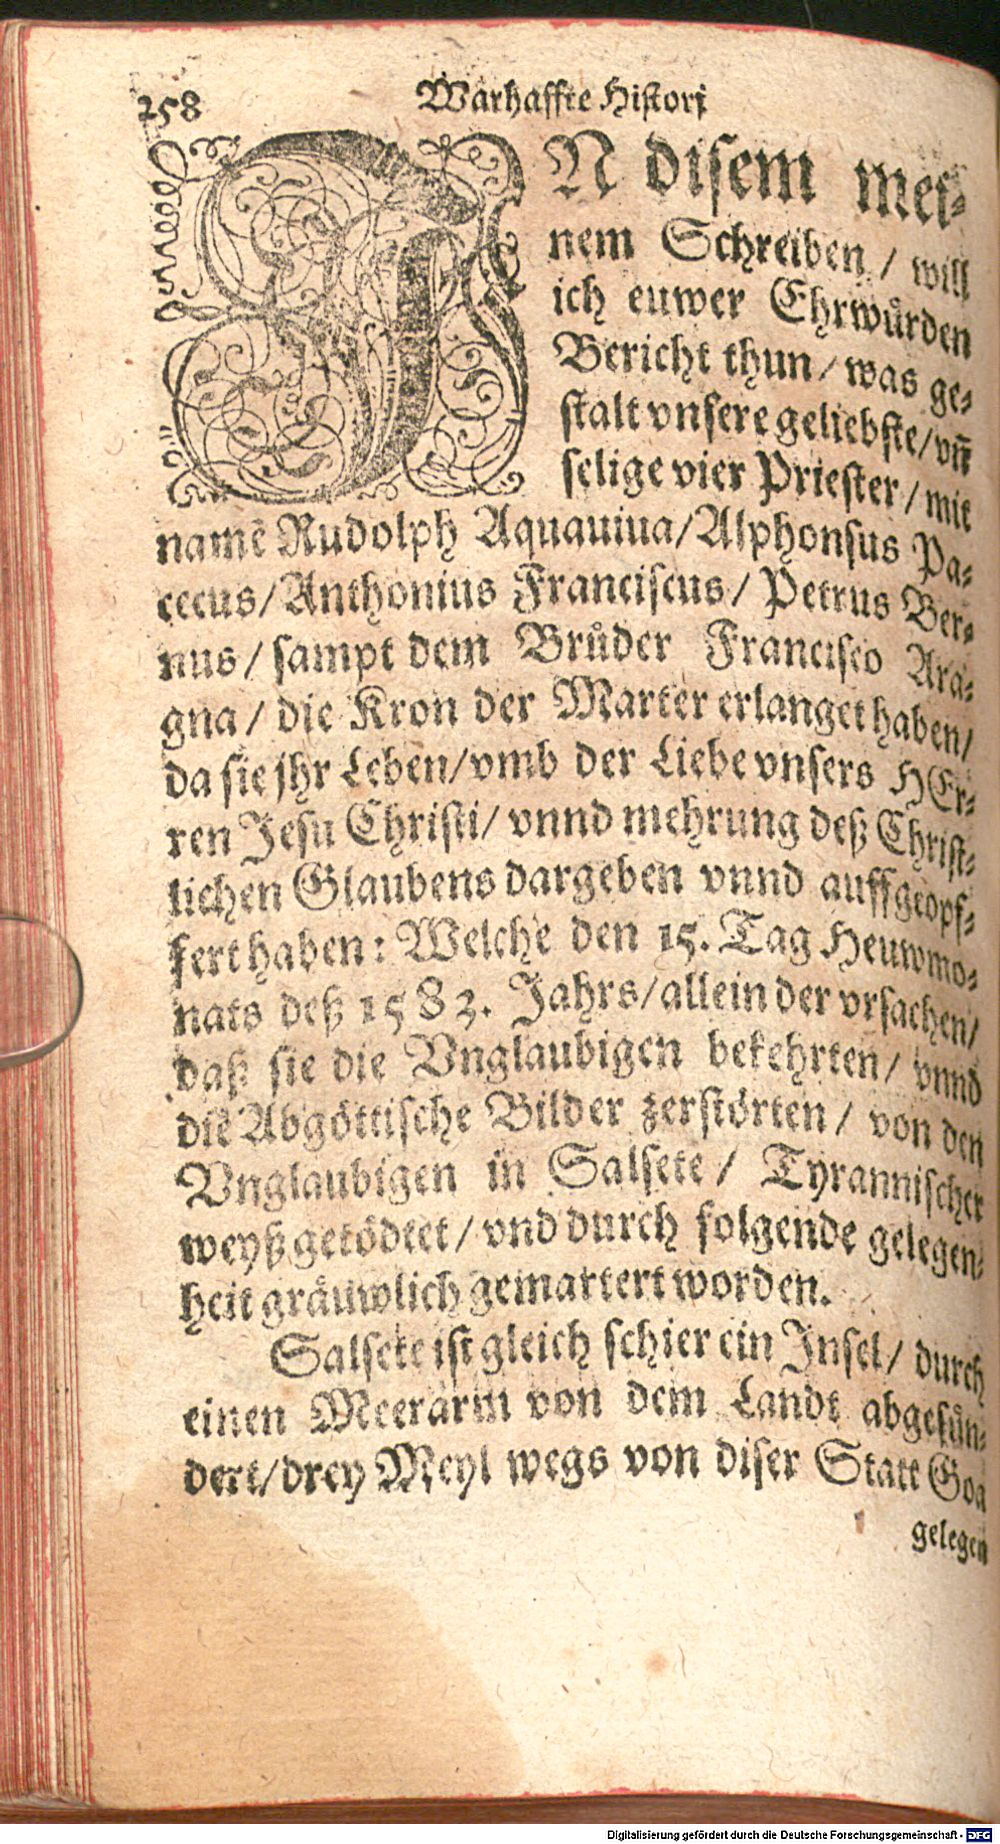 258 Warhaffte Histori
IN disem mei-
nem Schreiben / will
ich euwer Ehrwůrden
Bericht thun / was ge-
stalt vnsere geliebste / vñ
selige vier Priester / mit
namē Rudolph Aquauiua / Alphonsus Pa-
cecus / Anthonius Franciscus / Petrus Ber-
nus / sampt dem Brůder Francisco Ara-
gna / die Kron der Marter erlanget haben /
da sie jhr Leben / vmb der Liebe vnsers HEr-
ren Jesu Christi / vnnd mehrung deß Christ-
lichen Glaubens dargeben vnnd auffgeopf-
fert haben: Welche den 15. Tag Heuwmo-
nats deß 1583. Jahrs / allein der vrsachen /
daß sie die Vnglaubigen bekehrten / vnnd
die Abgöttische Bilder zerstörten / von den
Vnglaubigen in Salsete / Tyrannischer
weyß getödtet / vnd durch folgende gelegen-
heit gräuwlich gemartert worden.
Salsete ist gleich schier ein Insel / durch
einen Meerarm von dem Landt abgesün-
dert / drey Meyl wegs von diser Statt Goa
gelegen
Digitalisierung gefördert durch die Deutsche Forschungsgemeinschaft - DFG